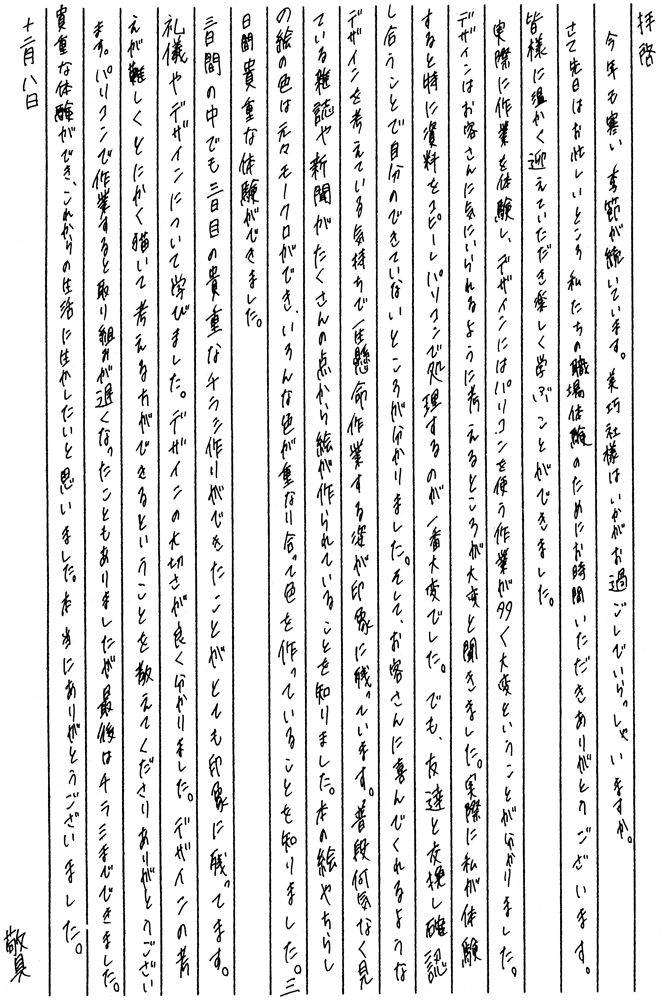 拝啓
今年も寒い季節が続いています。美巧社様はいかがお過ごしでいらっしゃいますか。
さて先日はお忙しいところ私たちの職場体験のためにお時間いただきありがとうございます。
皆様に温かく迎えていただき楽しく学ぶことができました。
実際に作業を体験し、デザインにはパソコンを使う作業が多く大変ということが分かりました。
デザインはお客さんに気にいられるように考えるところが大変と聞きました。実際に私が体験
すると特に資料をコピーしパソコンで処理するのが一番大変でした。でも、友達と交換し確認
し合うことで自分のできていないところが分かりました。そして、お客さんに喜んでくれるような
デザインを考えている気持ちで一生懸命作業する姿が印象に残っています。普段何気なく見
ている雑誌や新聞がたくさんの点から絵が作られていることを知りました。本の絵やちらし
の絵の色は元々モノクロができ、いろんな色が重なり合って色を作っていることを知りました。三
日間貴重な体験ができました。
三日間の中でも三日目の貴重なチラシ作りができたことがとても印象に残ってます。
礼儀やデザインについて学びました。デザインの大切さが良く分かりました。デザインの考
えが難しくとにかく描いて考える方ができるということを教えてくださりありがとうござい
ます。パソコンで作業すると取り組みが遅くなったこともありましたが最後はチラシまでできました。
貴重な体験ができ、これからの生活に生かしたいと思いました。本当にありがとうございました。
十二月八日
敬具